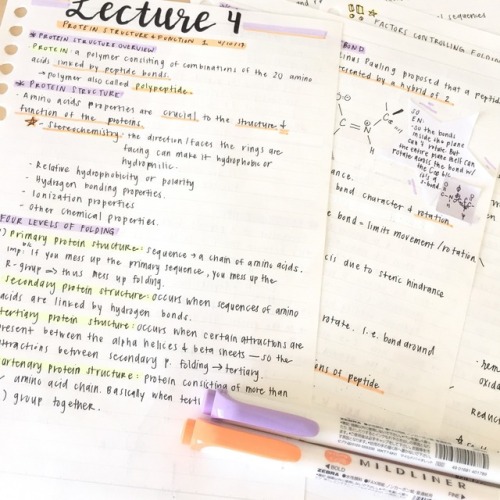 Lecture 4
PROTEIN STRUCTURE + FUNCTION 1
* PROTEIN STRUCTURE OVERVIEW
PROTEIN: a polymer consisting of combinations of the 20 amino
acids linked by peptide bonds.
→ polymer also called polypeptide.
* PROTEIN STRUCTURE
- Amino acids properties are crucial to the structure &
function of the proteins.
- Stereochemistry: the direction/faces the rings are
facing can make it hydrophobic or
hydrophilic.
- Relative hydrophobicity or polarity
- Hydrogen bonding properties.
- Ionization properties
- Other chemical properties.
FOUR LEVELS OF FOLDING
) Primary protein structure: sequence → a chain of amino acids.
imp. b/c If you mess up the primary sequence, you mess up the
R-group ⟹ thus mess up folding.
secondary protein structure: occurs when sequences of amino
acids are linked by hydrogen bonds.
tertiary protein structure: occurs when certain attractions are
present between the alpha helices & beta sheets — so the
attractions between secondary p. folding → tertiary.
protein structure: protein consisting of more than
amino acid chain. Basically when
) group together.
sequences
FACTORS CONTROLLING FOLDIN
BOND
Linus Pauling proposed that a peptid
resented by a hybrid of 2.
C
N
H
EN:
so the bonds
inside the plane
can't rotate. But
the entire plane itself can
rotate across the bond w/
ance.
bond character & rotation.
e bond = limits movement/rotation
is due to steric hindrance
rotate. i.e. bond around
ons of peptide
hem
oxida
Reduc
BOLD
MILDLINER
ZEBRA
FINE